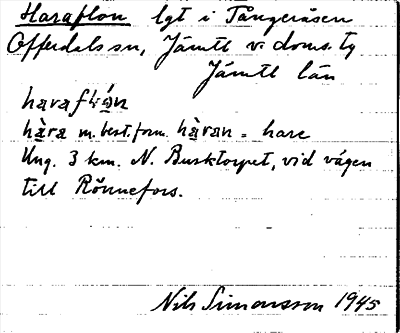 Haraflon lgt i Tångeråsen
Offerdals sn, Jämtl v. doms. tg
Jämtl län
harafɬån
hàra m. best. form. hàran = hare
Ung. 3 km. N. Busktorpet, vid vägen
till Rönnefors.
Nils Simonsson 1945